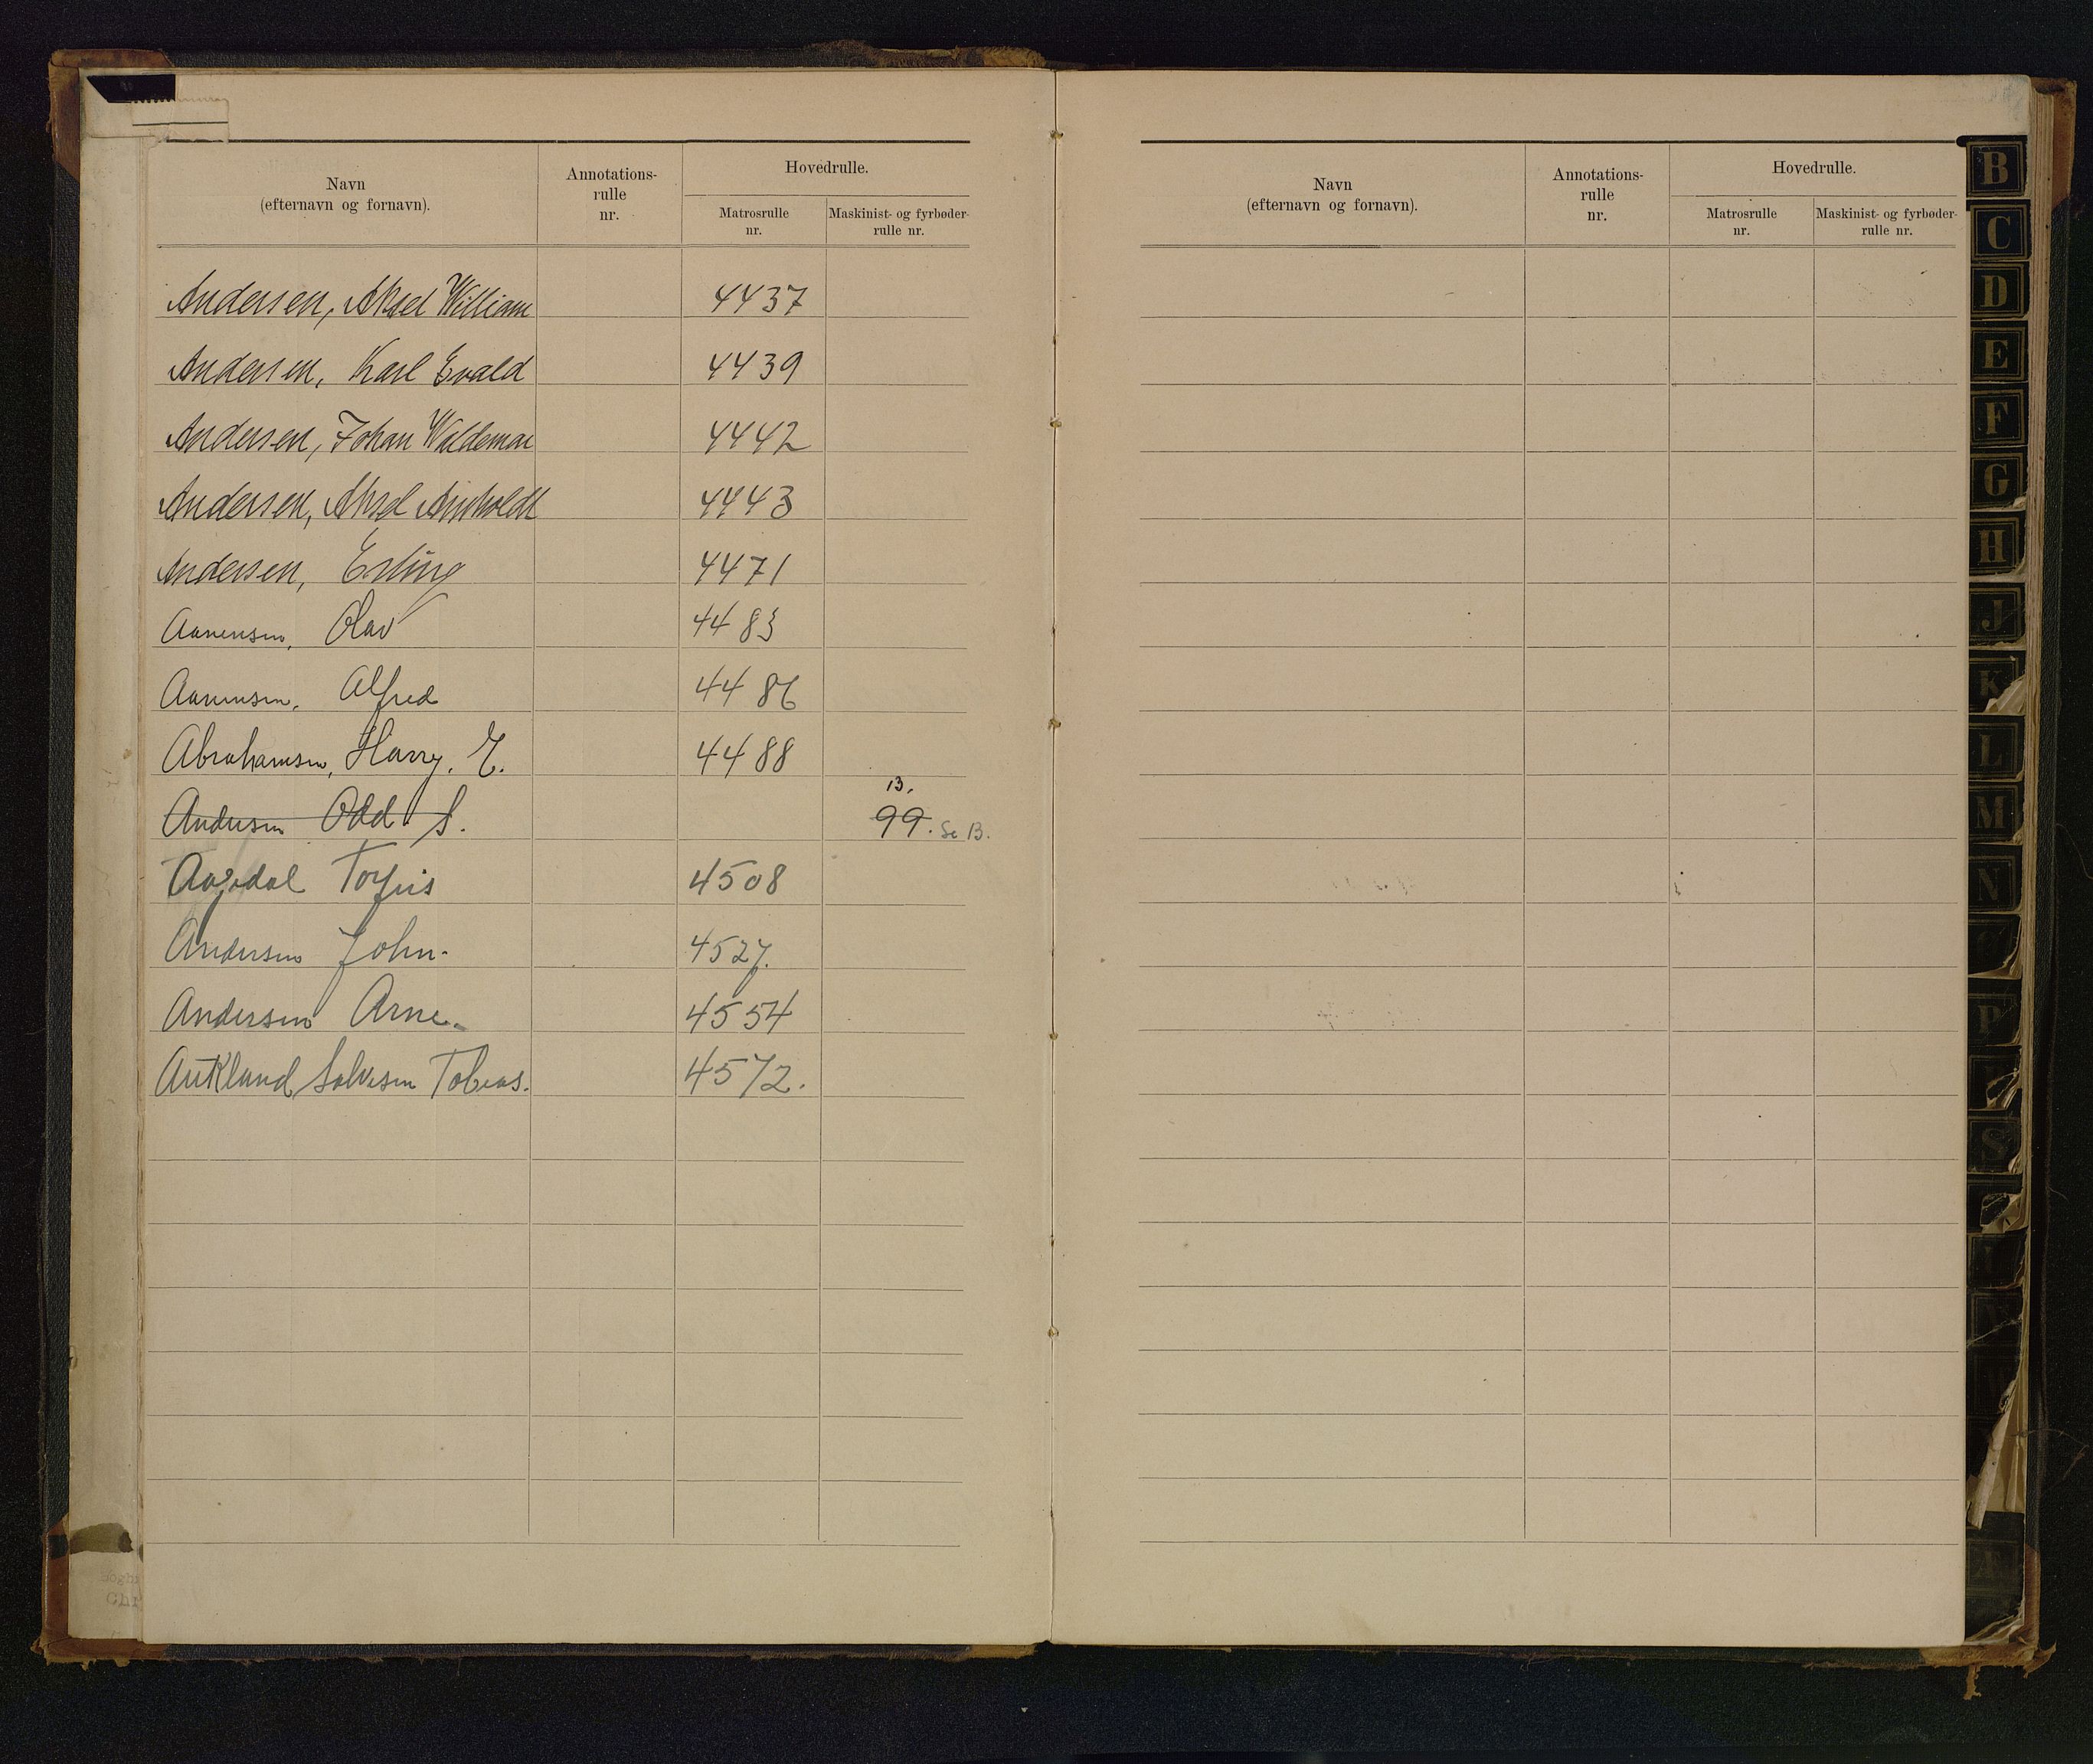 Navn
(efternavn og fornavn).
Annotations-
rulle
nr.
Hovedrulle.
Matrosrulle
nr.
Maskinist- og fyrbøder-
rulle nr.
Andersen, Aksel William 4437
Andersen, Karl Evald 4439
Andersen, Johan Waldemar 4442
Andersen, Aksel 4443
Andersen, Erling 4471
Aanensen, Olav 4483
Aanensen, Alfred 4486
Abrahamsen, Harry. E. 4488
13.
Andersen Odd S. 99. Se B.
4508
Andersen John. 4527.
Andersen Arne. 4554
Aukland Salvesen Tobias. 4572.
Navn
(efternavn og fornavn).
Annotations-
rulle
nr.
Hovedrulle.
Matrosrulle
nr.
Maskinist- og fyrbøder-
rulle nr.
B
C
D
E
F
G
H
J
K
L
M
N
P
S